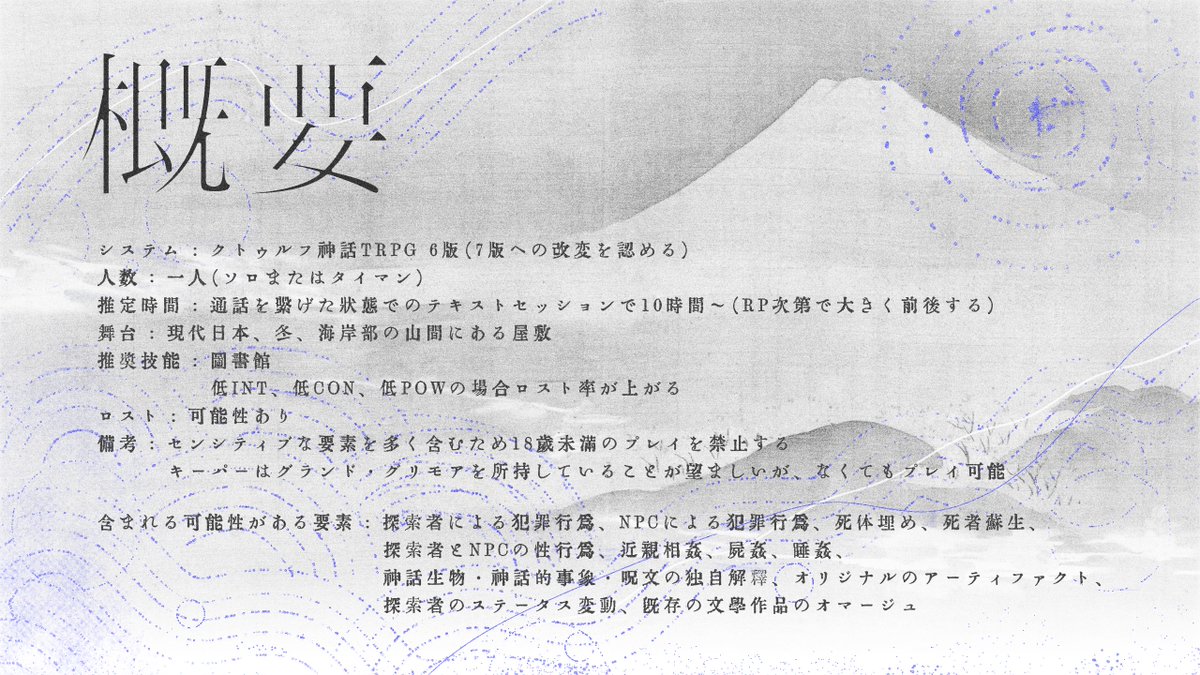 概要
システム：クトゥルフ神話TRPG 6版(7版への改変を認める)
人数：一人(ソロまたはタイマン)
推定時間：通話を繋げた狀態でのテキストセッションで10時間～(RP次第で大きく前後する)
舞台：現代日本、冬、海岸部の山間にある屋敷
推奬技能：圖書館
低INT、低CON、低POWの場合ロスト率が上がる
ロスト：可能性あり
備考：センシティブな要素を多く含むため18歲未滿のプレイを禁止する
キーパーはグランド・グリモアを所持していることが望ましいが、なくてもプレイ可能
含まれる可能性がある要素：探索者による犯罪行爲、NPCによる犯罪行爲、死体埋め、死者蘇生、
探索者とNPCの性行爲、近親相姦、屍姦、睡姦、
神話生物・神話的事象・呪文の独自解釋、オリジナルのアーティファクト、
探索者のステータス変動、既存の文學作品のオマージュ